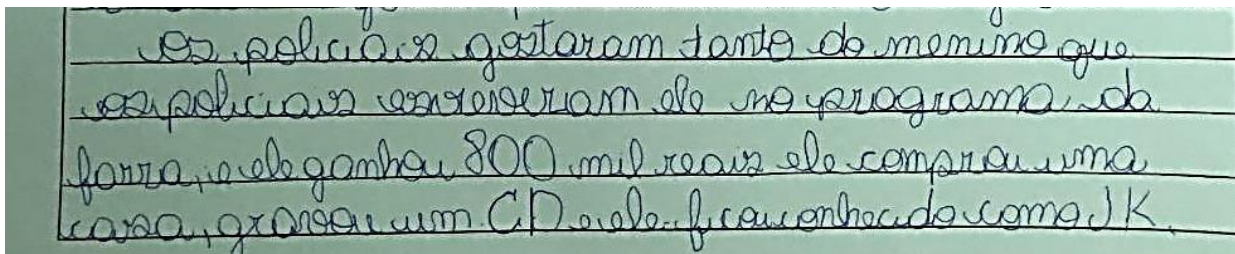 os policiais gostaram tanto do menino que
os policiais escreveram ele no programa da
farra, e ele ganhou 800 mil reais ele comprou uma
casa, gravou um CD e ele ficou conhecido como JK.